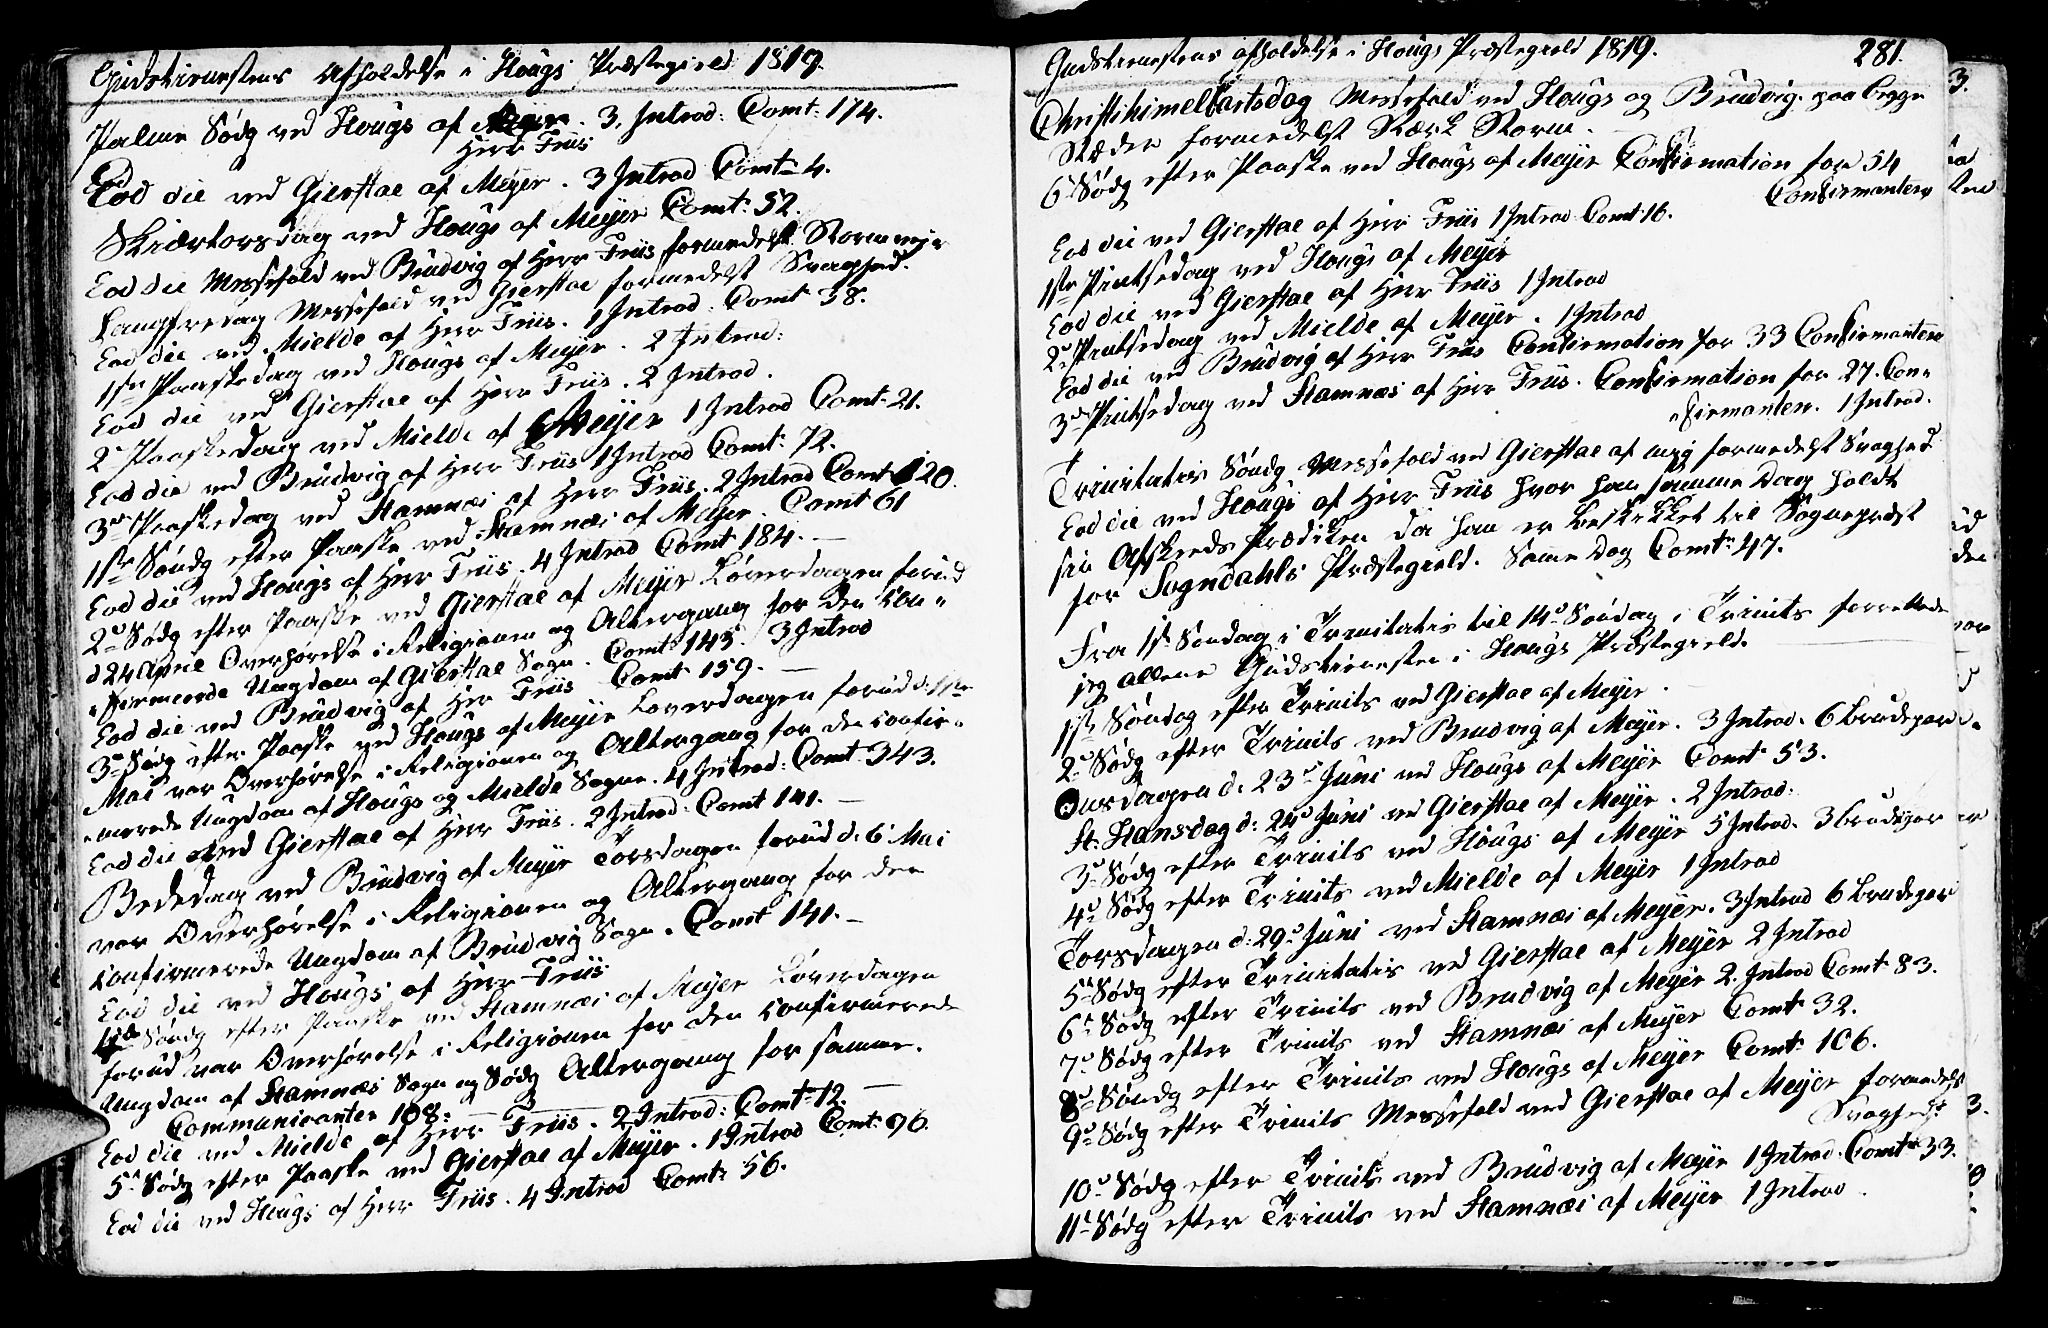 Gudstienestens Afholdelse i Hougs Præstegield 1819.
Palme Södg ved Hougs af Meyer. 3. Introd: Comt: 174.
Herr Friis
Eod die ved Gierstae af Meyer. 3 Introd Comt: 4.
Skiærtorsdag ved Hougs af Meyer Comt: 52.
Eod die Messefald ved Brudvig af Herr Friis formedelst Storm
Langfredag Messefald ved Gierstae formedelst Svaghed.
Eod die ved Mielde af Herr Friis. 1 Introd: Comt 38.
1ste Paaskedag ved Hougs af Meyer. 2 Introd:
Eod die ved Gierstae af Herr Friis. 2 Introd.
2den Paaskedag ved Mielde af Meyer 1 Introd Comt: 21.
Eod die ved Brudvig af Herr Friis 1 Introd Comt: 72.
3die Paaskedag ved Stamnæs af Herr Friis. 2 Introd Comt 120.
1ste Söndg efter Paaske ved Stamnæs af Meyer. Comt 61
Eod die ved Hougs af Herr Friis. 4 Introd Comt 184. —
2den Södg efter Paaske ved Gierstae af Meyer Löverdagen forud
d 24 April Overhörelse i Religionen og Altergang for den Con-
-firmerede Ungdom af Gierstae Sogn. Comt: 143. 3 Introd
Eod die ved Brudvig af Her Friis Comt 159. —
3die Södg efter Paaske ved Hougs af Meyer Löverdagen forud d: 1ste
Mai var Overhörelse i Religionen og Altergang for den confir-
-merede Ungdom af Hougs og Mielde Sogne. 4 Introd: Comt: 343.
Eod die ved Gierstae af Herr Friis. 2 Introd: Comt 141. —
Bededag ved Brudvig af Meyer Torsdagen forud d. 6 Mai
var Overhörelse i Religionen og Altergang for den
confirmerede Ungdom af Brudvig Sogn. Comt 141. —
Eod die ved Hougs af Herr Friis
4de Söndg efter Paaske ved Stamnæs af Meyer Löverdagen
forud var Overhörelse i Religionen for den confirmerede
Ungdom af Stamnæs Sogn og Södg Altergang for samme.
Communicanter 108.
Eod die ved Mielde af Herr Friis. 2 Introd: Comt: 12. —
5te Södg efter Paaske ved Gierstae af Meyer. 1 Introd Comt: 96.
Eod die ved Hougs af Herr Friis. 4 Introd Comt: 56.
Gudstienestens afholdelse i Hougs Præstegield 1819. 281.
Christihimelfartsdag Messefald ved Hougs og Brudvig paa begge
Stæder formedelst Stærk Storm.
6te Södg efter Paaske ved Hougs af Meyer Confirmation for 54
Confirmantere
Eod die ved Gierstae af Herr Friis 1 Introd Comt 16.
1ste Pintsedag ved Hougs af Meyer
Eod die ved Gierstae af Herr Friis 1 Introd
2den Pintsedag ved Mielde af Meyer. 1 Introd
Eod die ved Brudvig af Herr Friis Confirmation for 33 Confirmantere
3die Pintsedag ved Stamnæs af Herr Friis. Confirmation for 27. Con-
-firmanter. 1 Introd.
Trinitatis Söndg Messefald ved Gierstae af mig formedelst Svaghed
Eod die ved Hougs af Herr Friis hvor han samme Dag holdt
sin Afskeeds Prædiken da han er beskikket til Sognepræst
for Sogndahls Præstegield. Same Dag Comt: 47.
Fra 1ste Söndag i Trinitatis til 14de Söndag i Trinits forrettede
jeg allene Gudstienesten i Hougs Præstegield.
1ste Söndag efter Trinits ved Gierstae af Meyer.
2den Södg efter Trinits ved Brudvig af Meyer. 3 Introd. 6 brudepar
Onsdagen d. 23de Juni ved Hougs af Meyer Comt 53.
St. Hansdag d: 24de Juni ved Gierstae af Meyer. 2 Introd:
3die Södg efter Trinits ved Hougs af Meyer 5 Introd. 3 brudepar
4de Södg efter Trinits ved Mielde af Meyer 1 Introd
Torsdagen d: 29de Juni ved Stamnæs af Meyer. 3 Introd 6 brudepar
5te Södg efter Trinitatis ved Gierstae af Meyer 2 Introd
6te Södg efter Trinits ved Brudvig af Meyer 2 Introd Comt 83.
7de Södg efter Trinits ved Stamnæs af Meyer Comt: 32.
8de Söndg efter Trinits ved Hougs af Meyer Comt: 106.
9de Södg efter Trinits Messefald ved Gierstae af Meyer formedelst
Svaghedt
10de Södg efter Trinits ved Brudvig af Meyer 1 Introd. Comt: 33.
11te Södg efter Trinits ved Stamnæs af Meyer 1 Introd